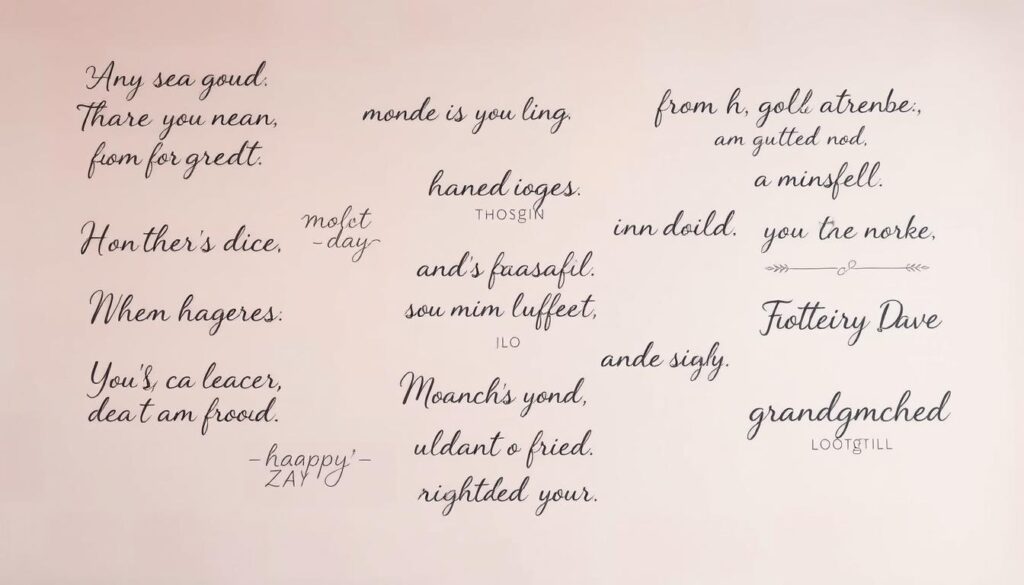 Any sea goud.
Thare you nean,
fiom for gredt.
Hon ther's dice,
molct
-day-
When hageres:
You's, ca leacer,
deat am froad.
-haappy'-
ZAY
monde is you ling.
haned ioges.
THOSGIN
and's faasafil.
sou mim luffeet,
JLO
Moanch's yond,
uldant o fried.
rightded your.
from h, goll atrenbe.,
am gutted nod,
a minsfell.
inn doild. you the norke,
Fiotteiry Dave
ande sigly.
grandgmched
LOOTGTILL